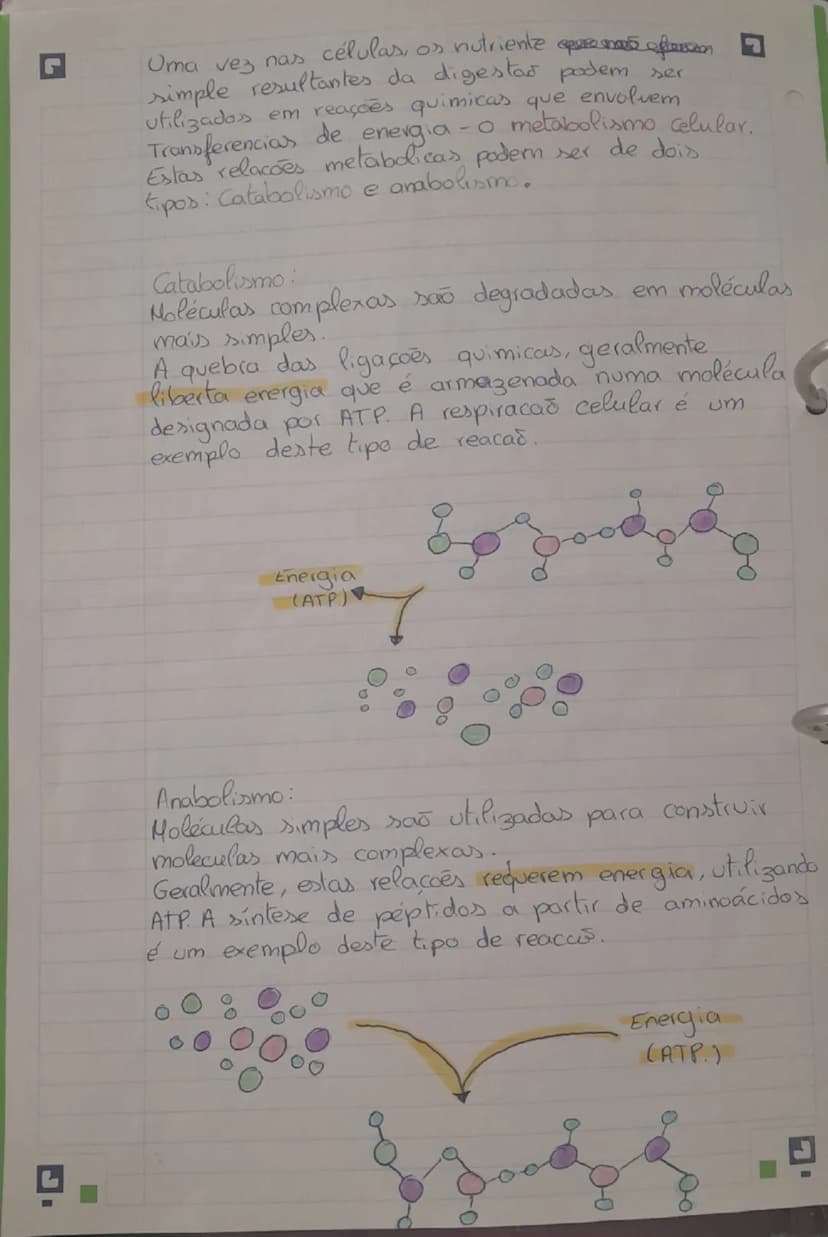 Uma vez nas células, os nutriente
simple resultantes da digestaõ podem ser
utilizados em reações quimicas que envolvem
Transferencias de energia - o metabolismo celular.
Estas relacões metabolicas podem ser de dois
tipos: Catabolismo e anabolismo.
Catabolismo:
Moléculas complexas saõ degradadas em moléculas
mais simples.
A quebra das ligaçoẽs quimicas, geralmente
liberta energia que é armazenada numa molécula
designada por ATP. A respiracaõ celular é um
exemplo deste tipo de reacaõ.
Energia
(ATP)
Anabolismo:
Moléculas simples saõ utilizadas para construir
moleculas mais complexas.
Geralmente, estas relaçoẽs requerem energia, utilizando
ATP. A síntese de péptidos a partir de aminoácidos
é um exemplo deste tipo de
Energia
(ATP.)